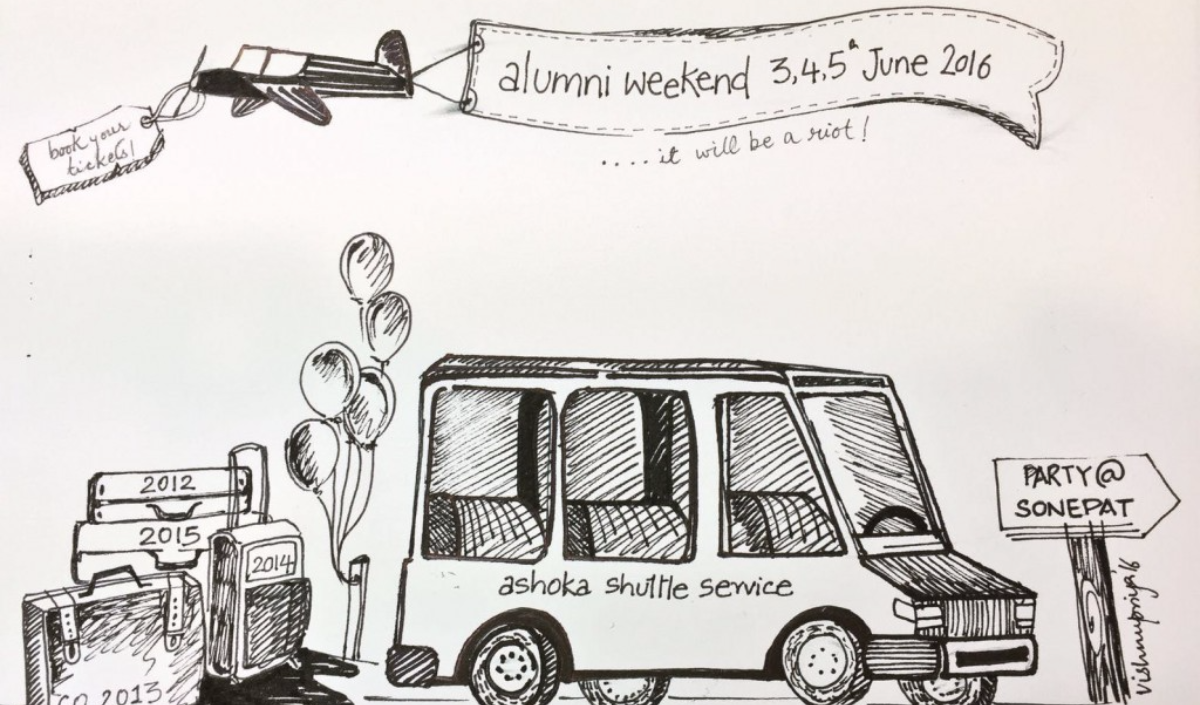 alumni weekend 3,4,5th June 2016
....it will be a riot!
book your
tickets!
2012
2015
2014
2013
ashoka shuttle service
PARTY@
SONEPAT
vishnupriya'16